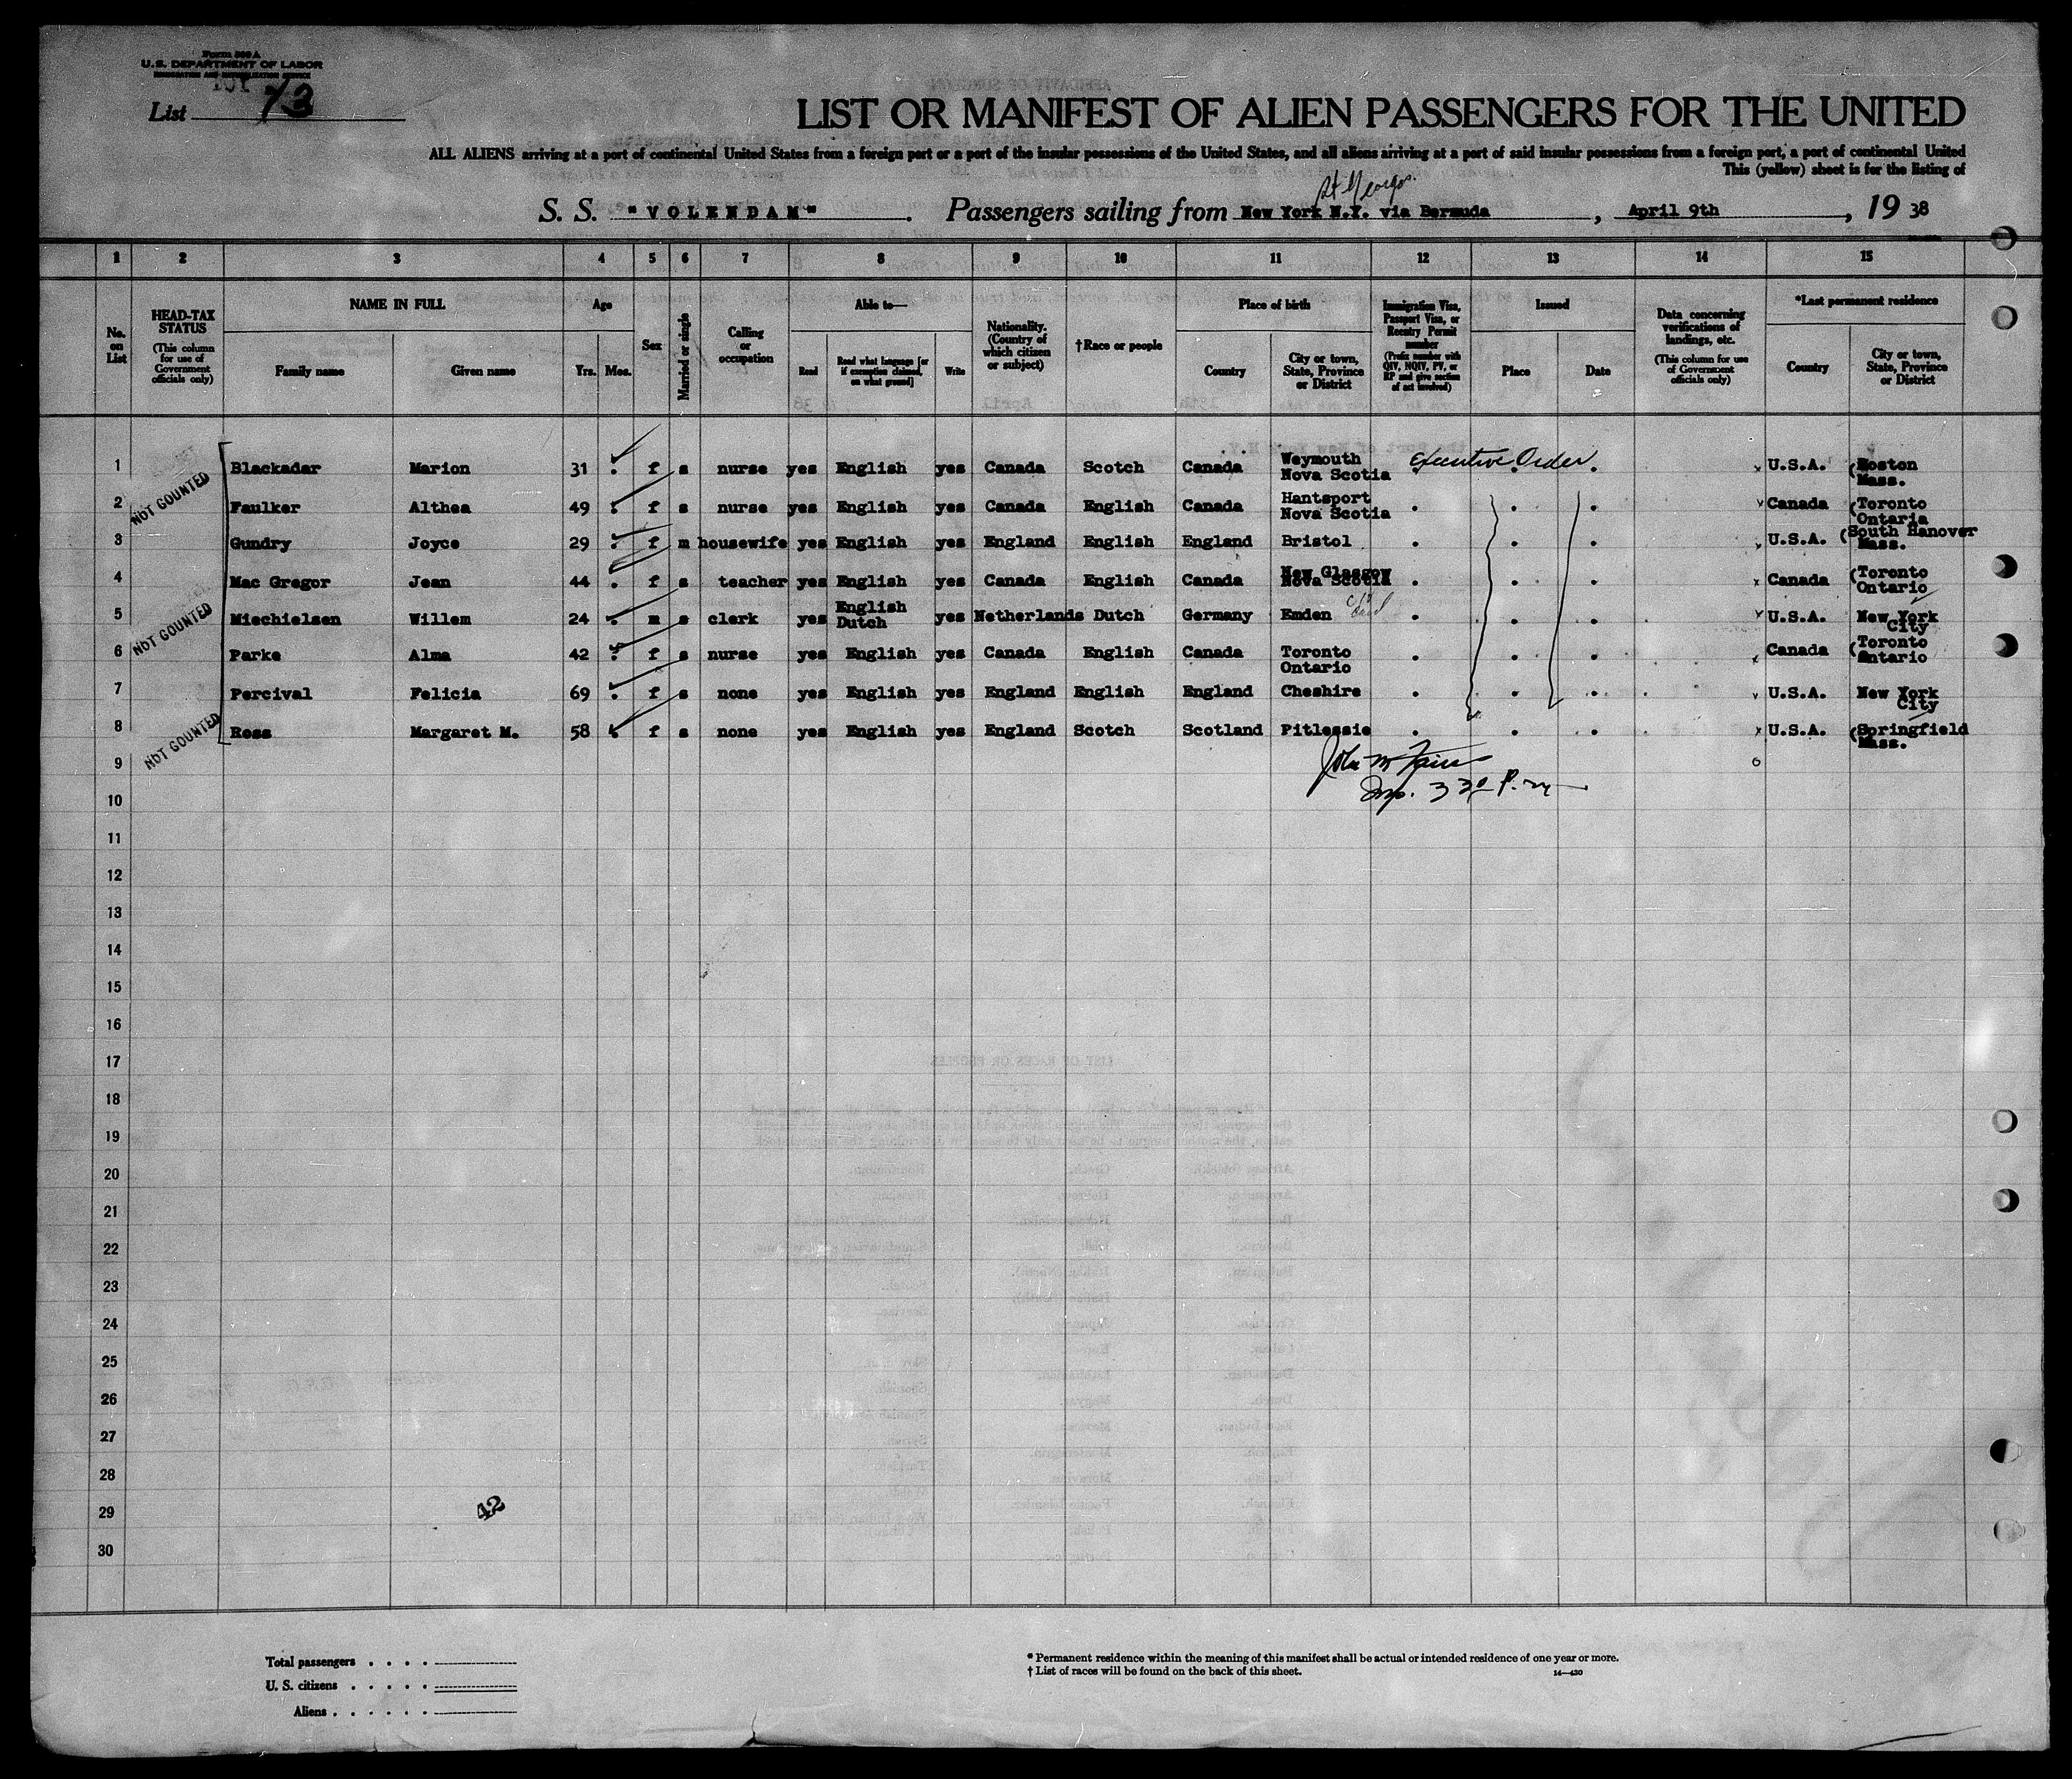 Form 500 A
U. S. DEPARTMENT OF LABOR
IMMIGRATION AND NATURALIZATION SERVICE
List 73
LIST OR MANIFEST OF ALIEN PASSENGERS FOR THE UNITED
ALL ALIENS arriving at a port of continental United States from a foreign port or a port of the insular possessions of the United States, and all aliens arriving at a port of said insular possessions from a foreign port, a port of continental United
This (yellow) sheet is for the listing of
St Georges.
S. S. "VOLENDAM". Passengers sailing from New York N.Y. via Bermuda, April 9th, 19 38
1 2 3 4 5 6 7 8 9 10 11 12 13 14 15
No. on List
HEAD-TAX STATUS
(This column for use of Government officials only)
NAME IN FULL
Family name
Given name
Age
Yrs. Mos.
Sex
Married or single
Calling or occupation
Able to—
Read
Read what language [or if exemption claimed, on what ground]
Write
Nationality. (Country of which citizen or subject)
†Race or people
Place of birth
Country
City or town, State, Province or District
Immigration Visa, Passport Visa, or Reentry Permit number
(Prefix number with QIV, NQIV, PV, or RP and give section of act involved)
Issued
Place
Date
Data concerning verifications of landings, etc.
(This column for use of Government officials only)
*Last permanent residence
Country
City or town, State, Province or District
1 Blackadar Marion 31 f s nurse yes English yes Canada Scotch Canada Weymouth Nova Scotia Executive Order. U.S.A. (Boston Mass.
NOT COUNTED
2 Faulker Althea 49 f s nurse yes English yes Canada English Canada Hantsport Nova Scotia Canada (Toronto Ontaria
3 Gundry Joyce 29 f m housewife yes English yes England English England Bristol U.S.A. (South Hanover Mass.
4 Mac Gregor Jean 44 f s teacher yes English yes Canada English Canada New Glasgow Nova Scotia Canada (Toronto Ontario
NOT COUNTED
5 Miechielsen Willem 24 m s clerk yes English Dutch yes Netherlands Dutch Germany Emden U.S.A. New York City
6 Parke Alma 42 f s nurse yes English yes Canada English Canada Toronto Ontario Canada (Toronto Ontario
7 Percival Felicia 69 f s none yes English yes England English England Cheshire U.S.A. New York City
NOT COUNTED
8 Ross Margaret M. 58 f s none yes English yes England Scotch Scotland Pitlessie U.S.A. (Springfield Mass.
9
Insp. 3 30 P. m
10
11
12
13
14
15
16
17
18
19
20
21
22
23
24
25
26
27
28
29
30
42
Total passengers
U. S. citizens
Aliens
* Permanent residence within the meaning of this manifest shall be actual or intended residence of one year or more.
† List of races will be found on the back of this sheet.
14—430